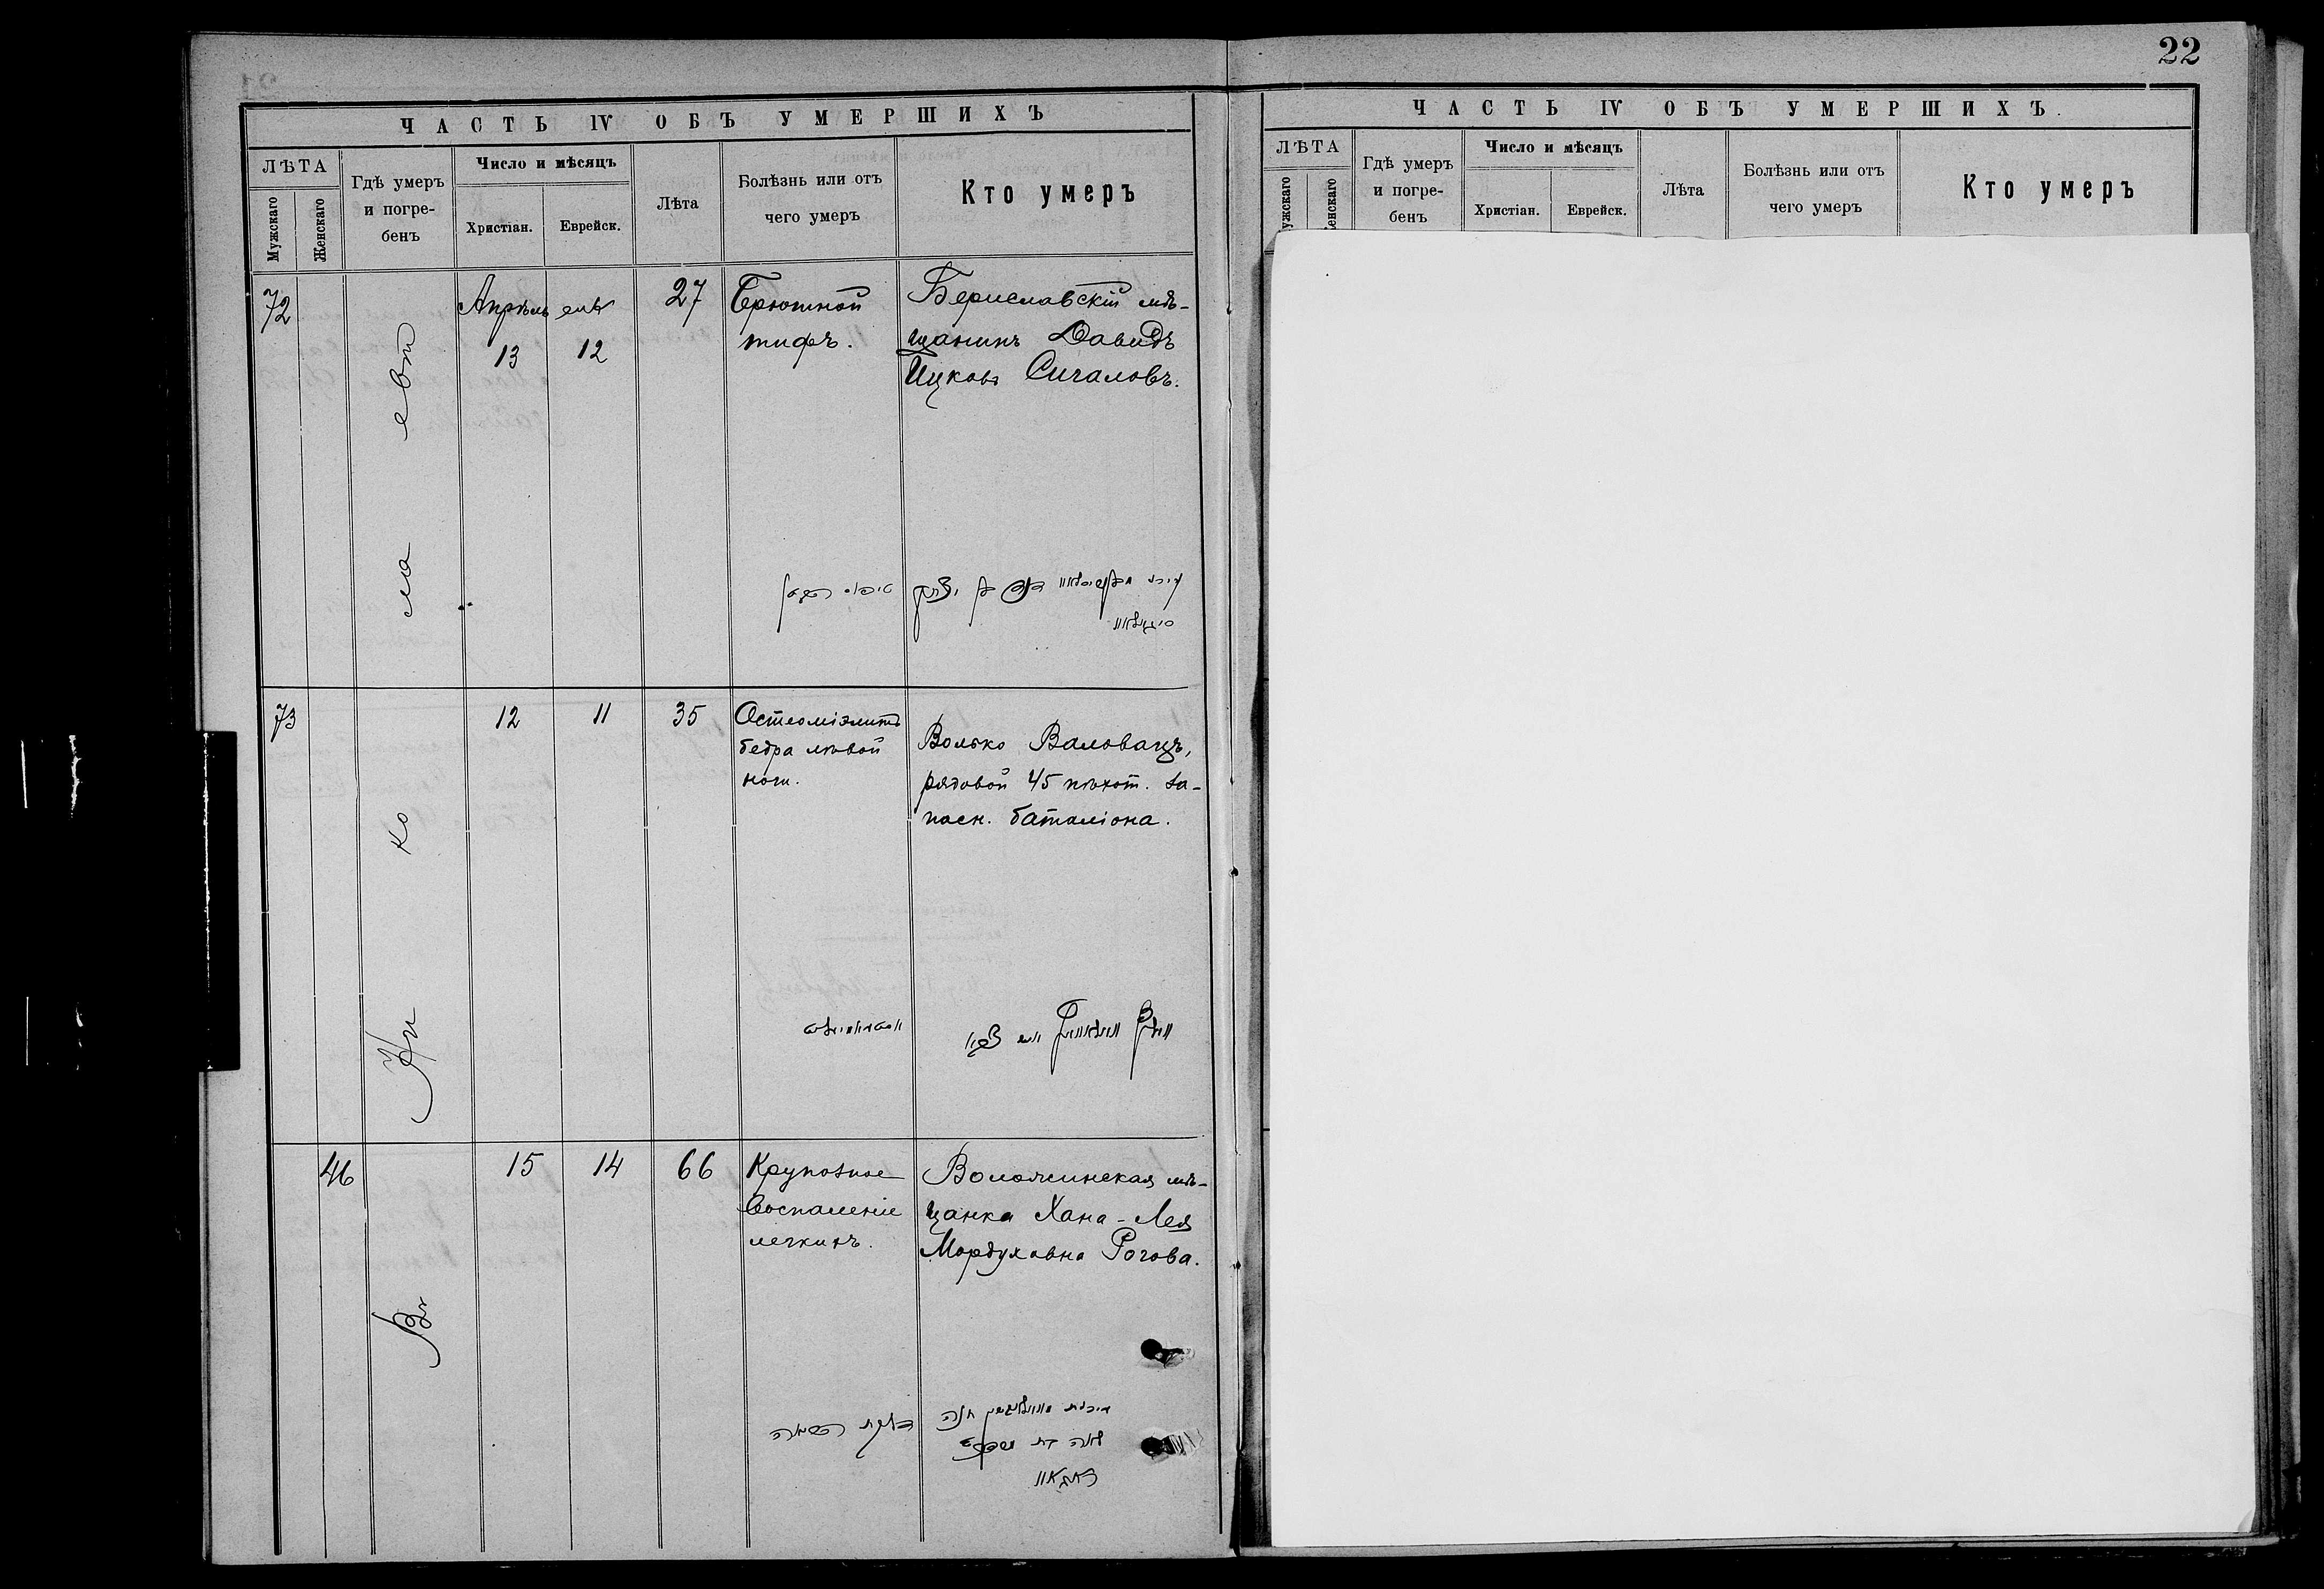 22
ЧАСТЬ IV ОБЪ УМЕРШИХЪ
ЛѢТА
Мужскаго
Женскаго
Гдѣ умеръ
и погре-
бенъ
Число и мѣсяцъ
Христіан.
Еврейск.
Лѣта
Болѣзнь или отъ
чего умеръ
Кто умеръ
Въ Ни ко ла евѣ
72
Апрѣль
13
12
27
Брюшной
тифъ.
Бериславскій мѣ-
щанинъ Давидъ
Ицковъ Сигаловъ.
73
12
11
35
Остеоміэлитъ
бедра лѣвой
ноги.
Волько Валовацъ,
рядовой 45 пѣхот. за-
пасн. баталіона.
46
15
14
66
Крупозное
воспаленіе
легкихъ.
Воложинская мѣ-
щанка Хана-Лея
Мордуховна Рогова.
ראגאוו
ЧАСТЬ IV ОБЪ УМЕРШИХЪ.
ЛѢТА
ужскаго
енскаго
Гдѣ умеръ
и погре-
бенъ
Число и мѣсяцъ
Христіан.
Еврейск.
Лѣта
Болѣзнь или отъ
чего умеръ
Кто умеръ